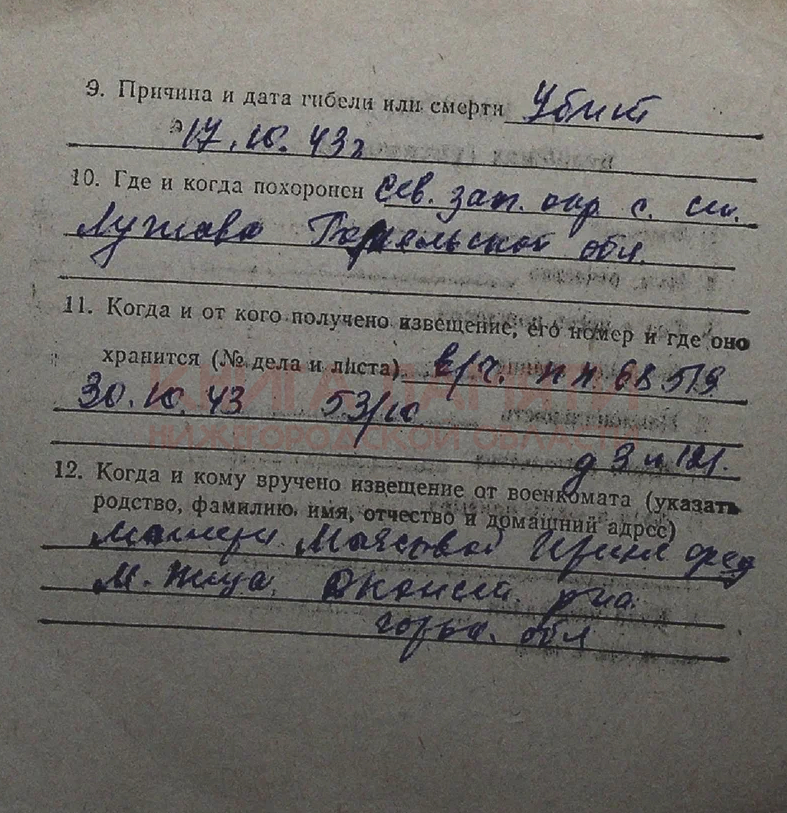 9. Причина и дата гибели или смерти Убит
17.10.43г
10. Где и когда похоронен сев. зап. окр с. ст.
Лужава Гомельской обл.
11. Когда и от кого получено извещение, его номер и где оно
хранится (№ дела и листа) в/ч. пп 68519
30.10.43 53/10
д 3 л 121.
12. Когда и кому вручено извещение от военкомата (указать
родство, фамилию, имя, отчество и домашний адрес)
Матери
М. обл
КНИГА ПАМЯТИ
НИЖЕГОРОДСКОЙ ОБЛАСТИ